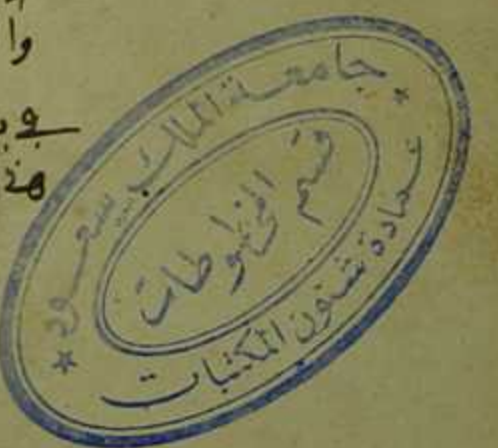 وا
هذ
جامعة الملك سعود
قسم المخطوطات
عمادة شئون المكتبات